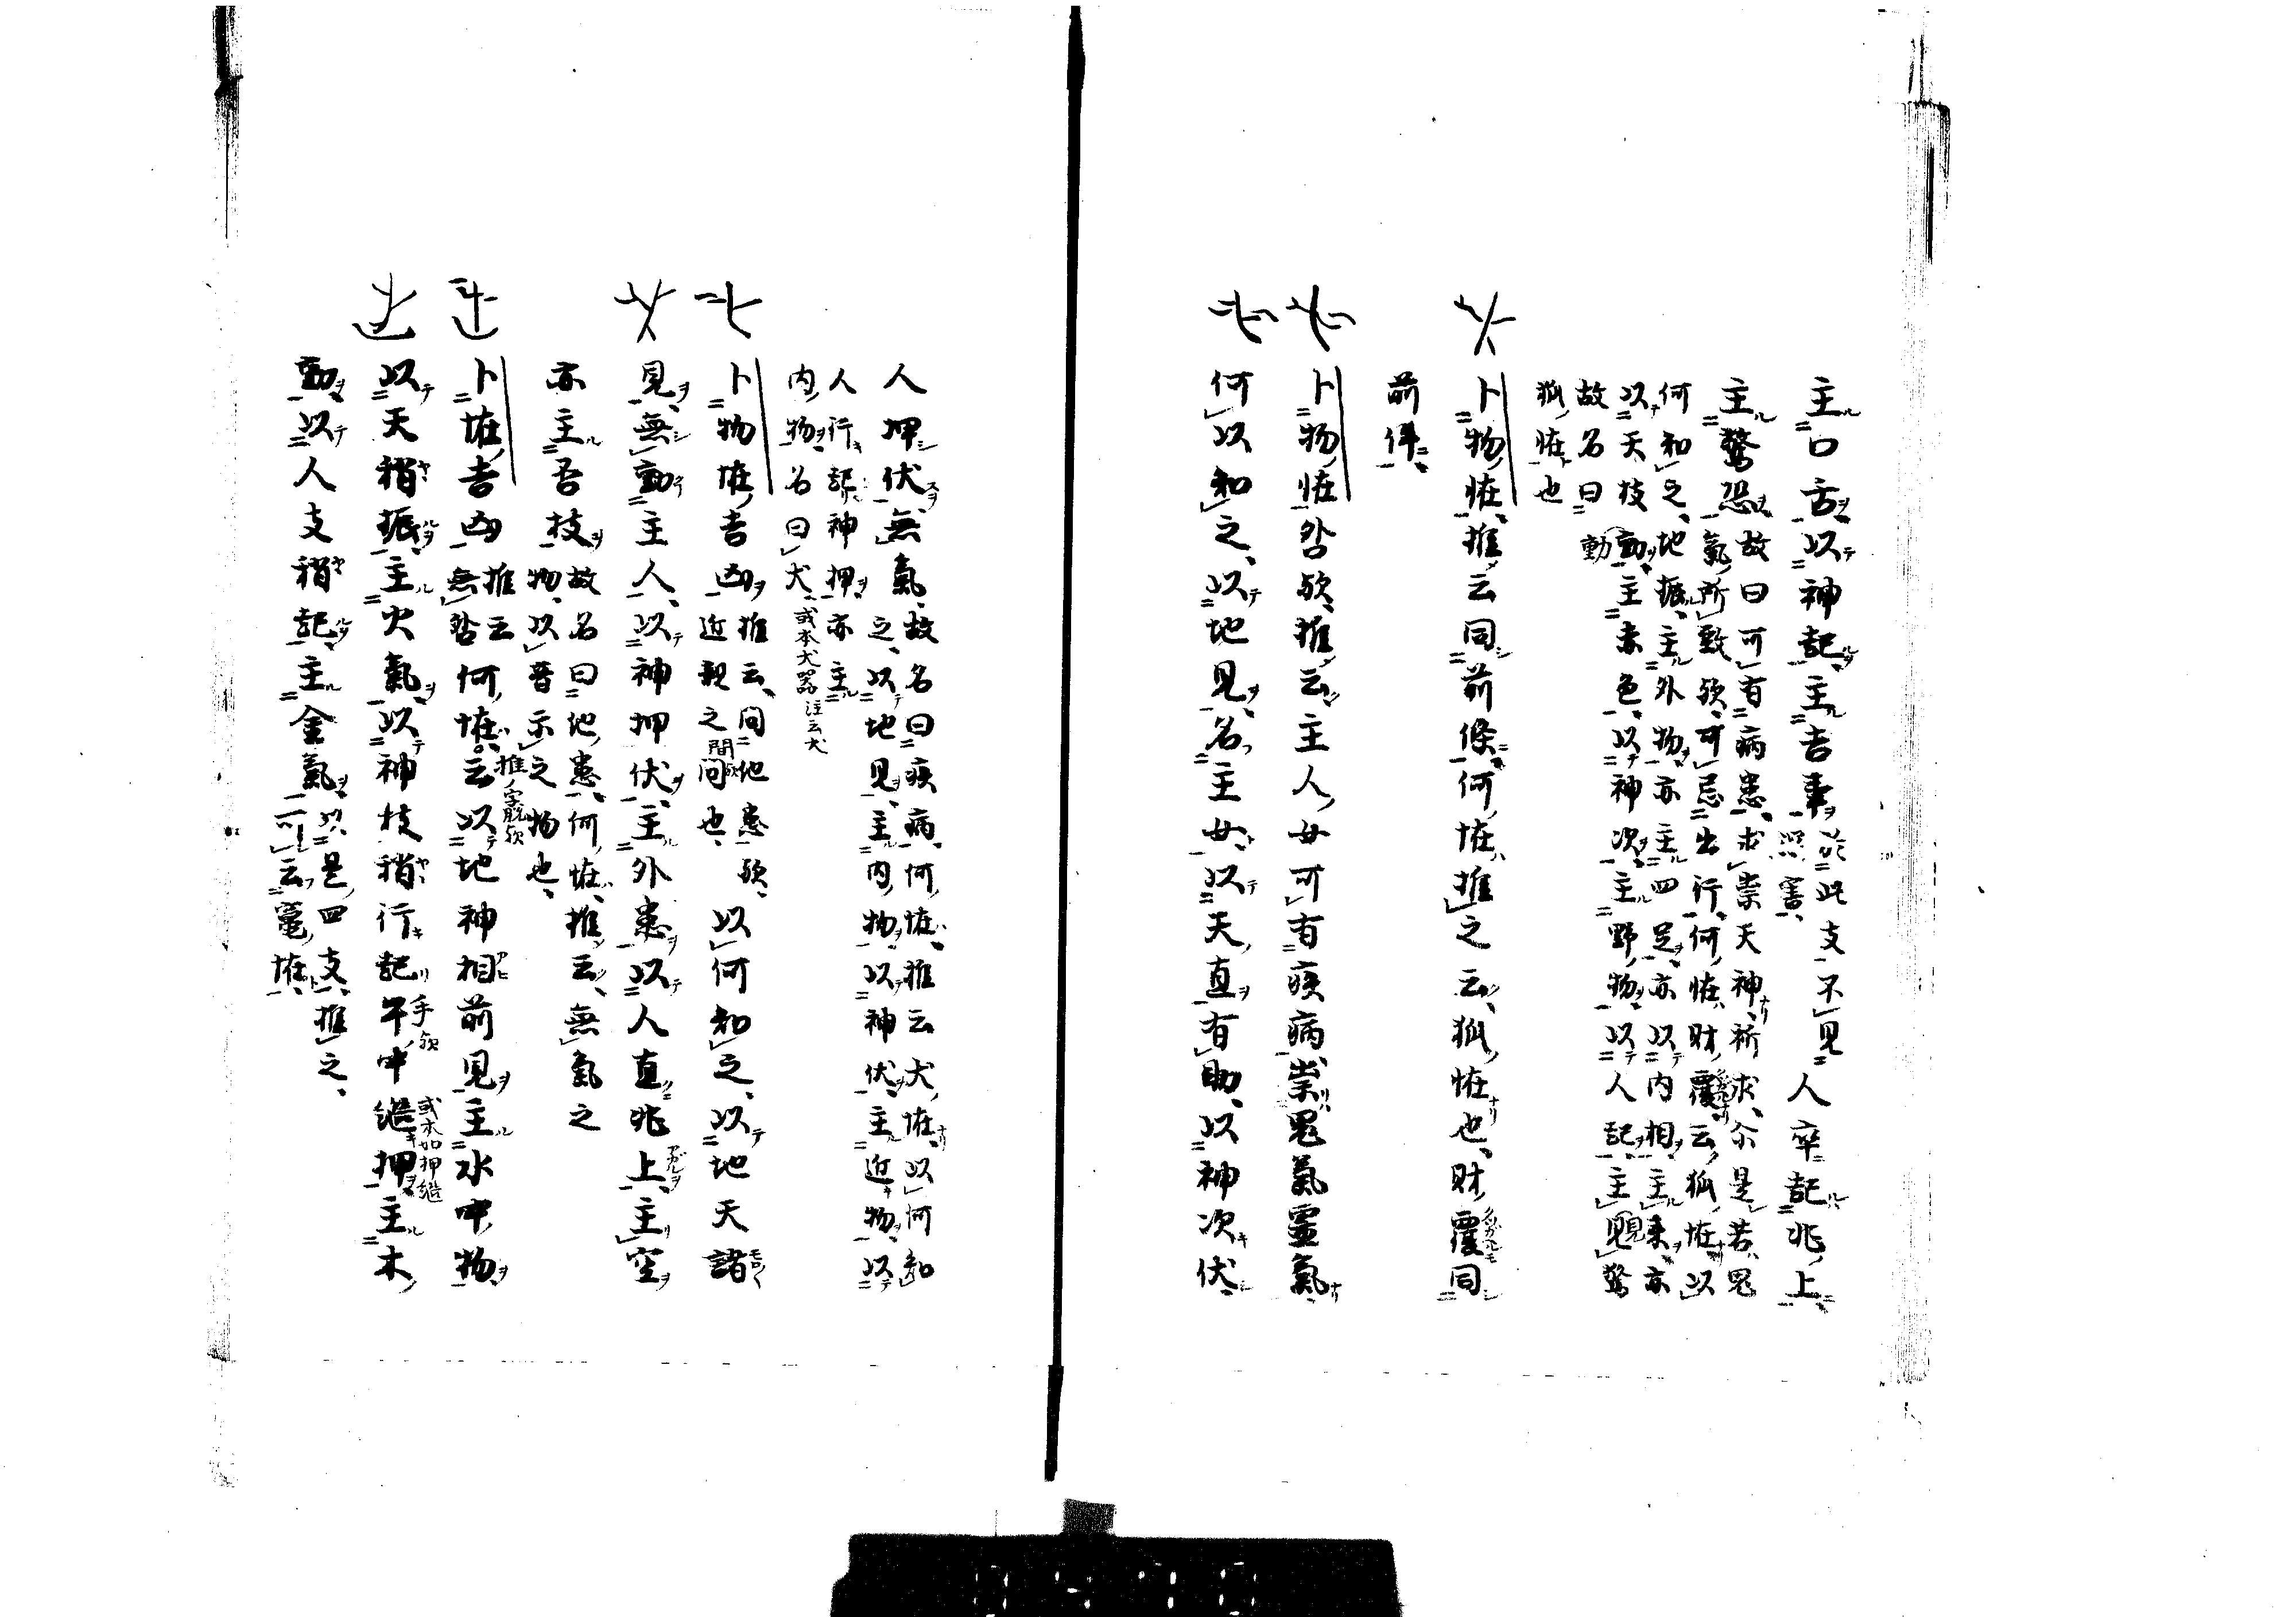 主口舌以神起主吉事於此支不見人卒起兆上
災害
主驚恐故曰可有病患求崇天神祈求尒是若鬼
氣所致欤可忌出行何恠財覆云狐恠以
何知之地振主外物亦主四足亦以内相主来亦
以天枝動主赤色以神次主野物以人起主見驚
故名曰動
狐恠也
卜物恠推云同前條何恠推之云狐恠也財覆同
前件
卜物恠咎欤推云主人女可有疾病祟鬼氣霊氣
何以知之以地見名主女以天直有助以神次伏
人押伏無氣故名曰疾病何恠推云犬恠以何知
之以地見主内物以神伏主近物以
人行起神押亦主
内物名曰犬或本犬器注云犬
卜物恠吉凶推云問他患欤以何知之以地天諸
近親之間問也
見無動主人以神押伏主外患以人直兆上主空
亦主吾技故名曰他患何恠推云無氣之
物以昔示之物也
卜恠吉凶推云
無咎何恠云以地神相前見主水中物
推ノ字脱欤
以天稍振主火氣以神枝稍行起午中継押主木
手欤
或本如押継
動以人支稍起主金氣以是四支推之
可云竃恠